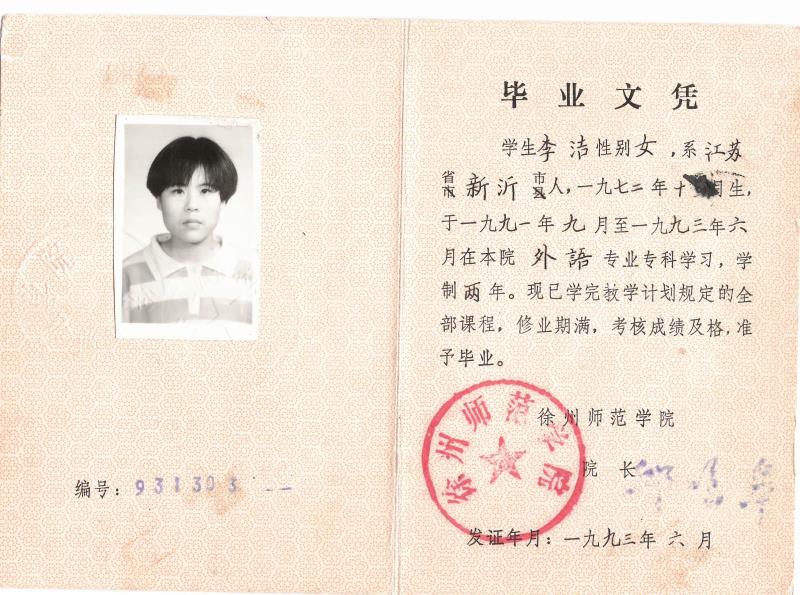 毕业文凭
学生李洁性别女,系江苏
省市新沂市县人,一九七二年十月生,
于一九九一年九月至一九九三年六
月在本院外語专业专科学习,学
制两年。现已学完教学计划规定的全
部课程,修业期满,考核成绩及格,准
予毕业。
徐州师范学院
徐州师范学院
院长
编号:931303
发证年月:一九九三年六月